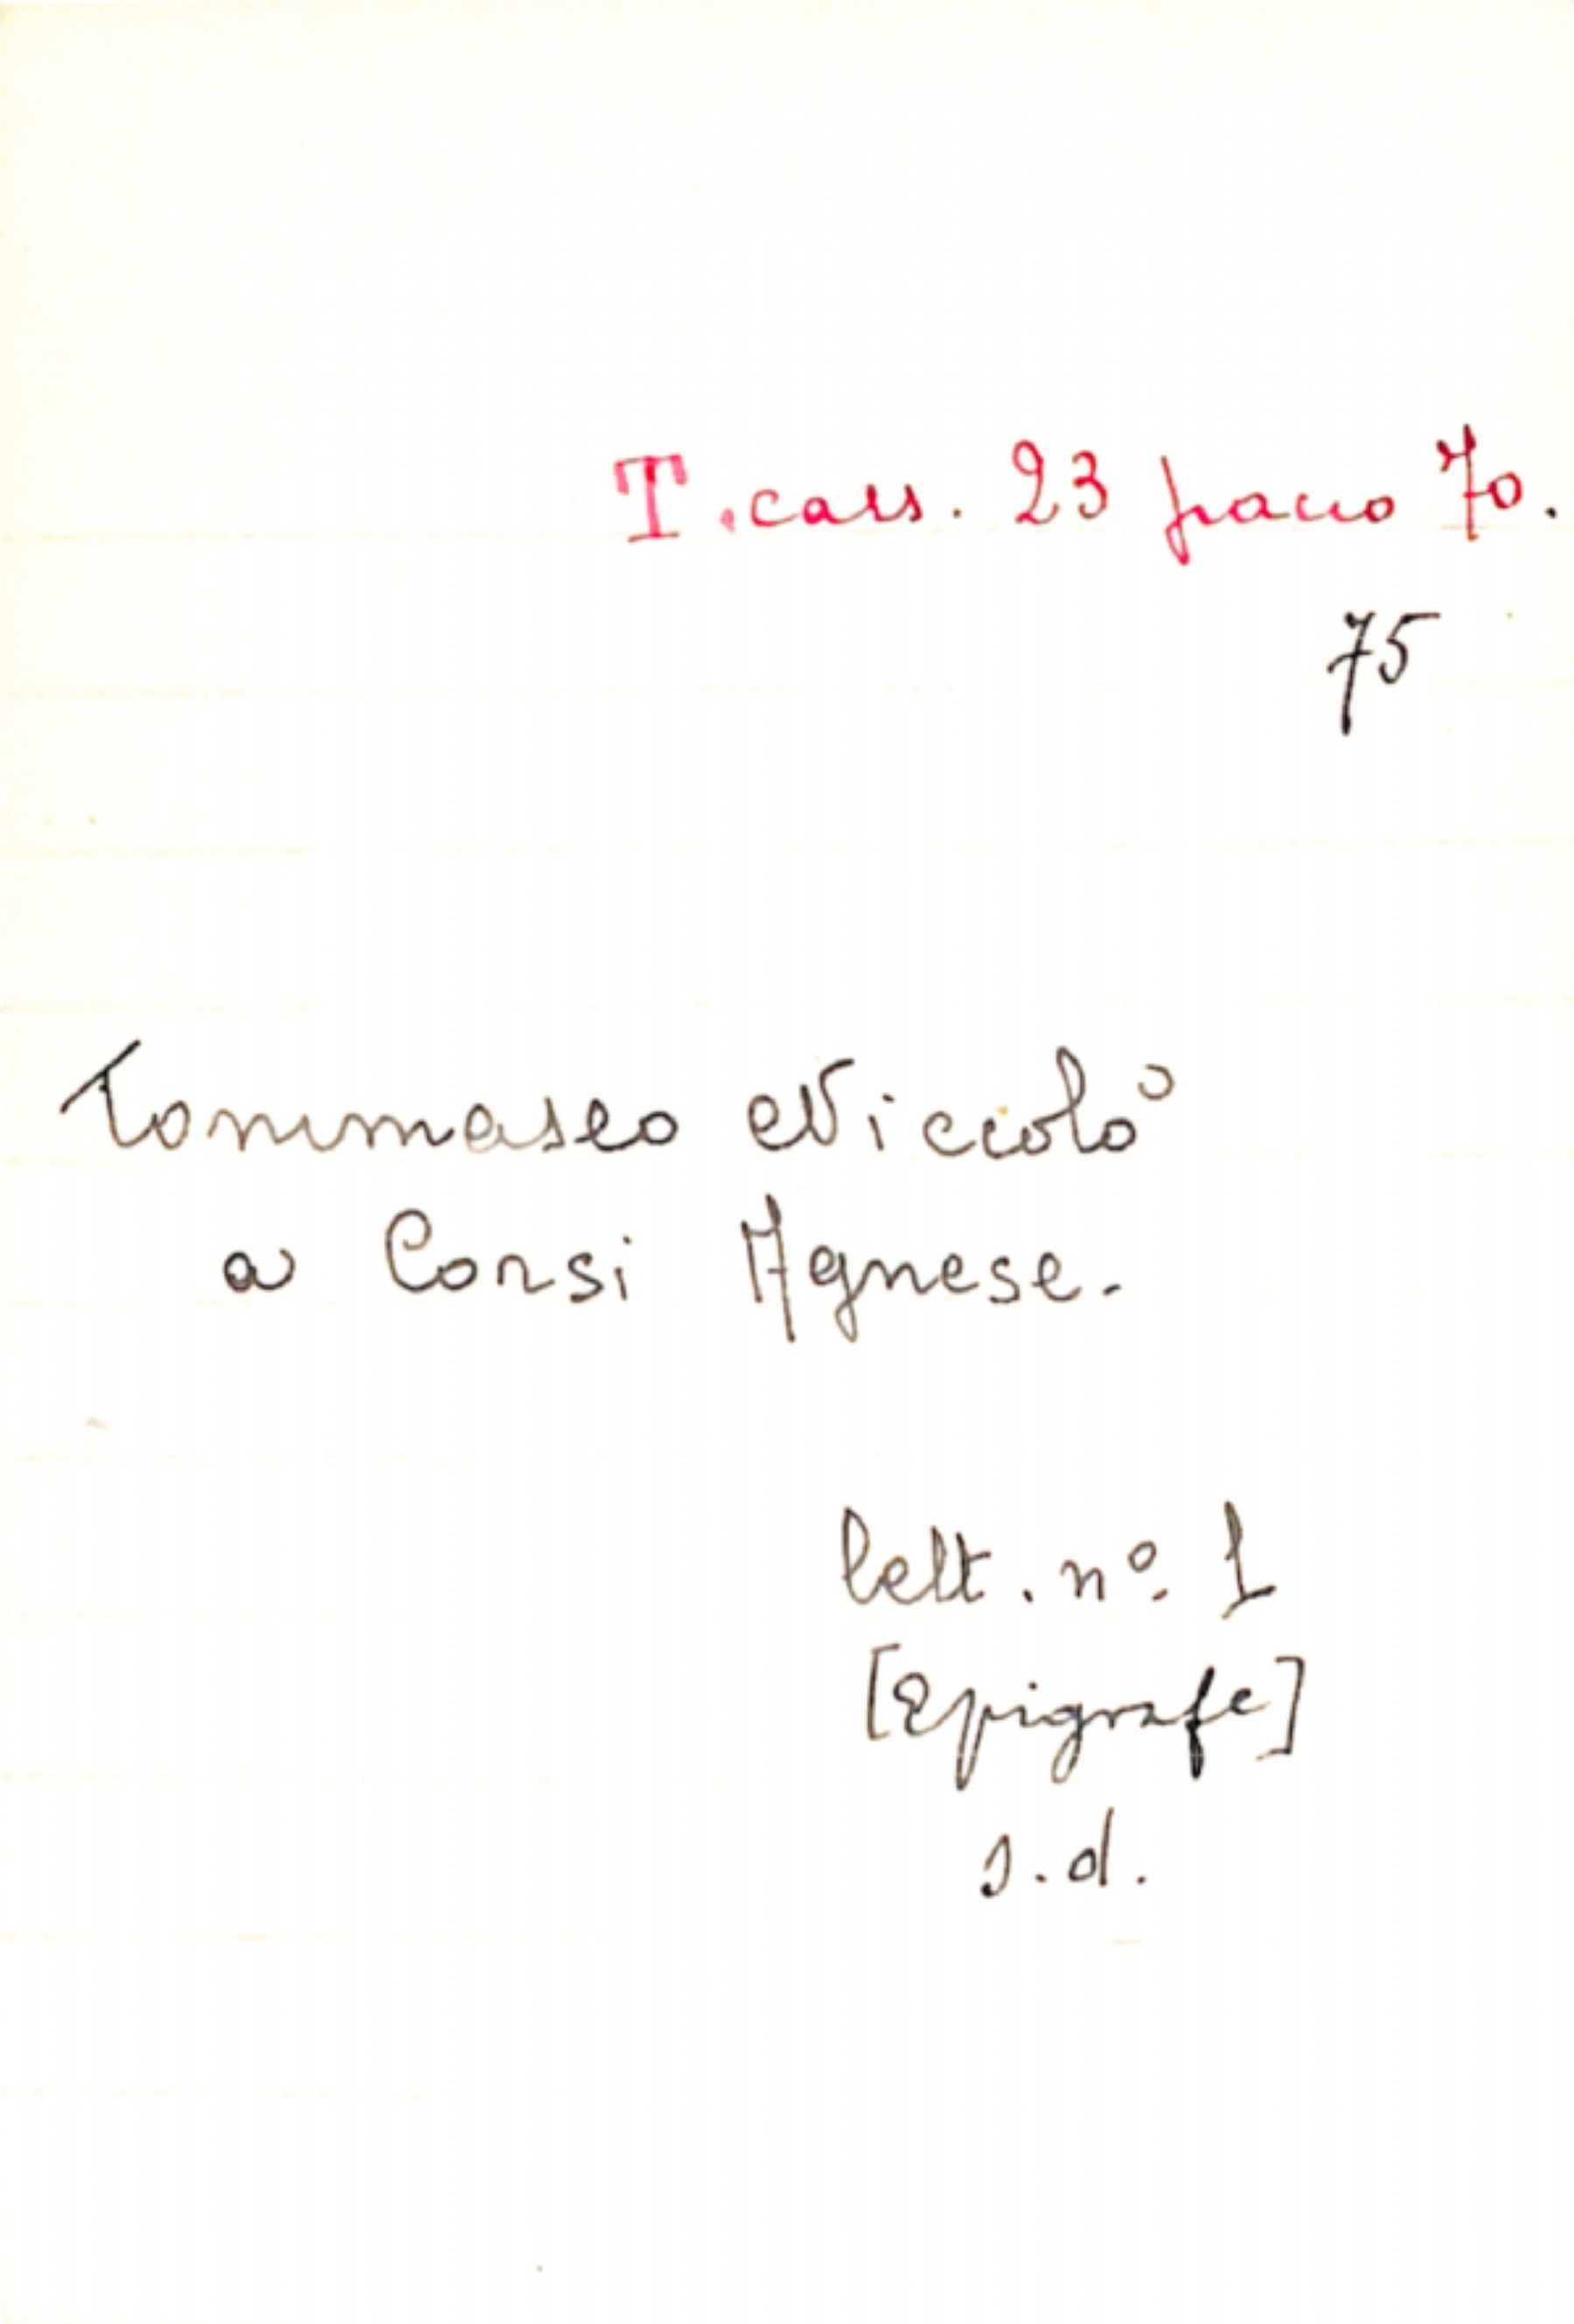 T. cass. 23 pacco 70.
75
Tommaseo Niccolò
a Corsi Agnese.
lett. nº. 1
[Epigrafe]
s.d.